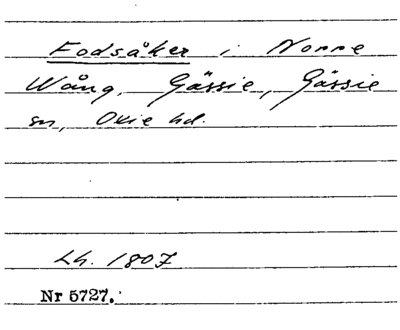 Fodsåker i Norre
Wång, Gässie, Gässie
sn, Oxie hd.
Lh. 1807
Nr 5727.